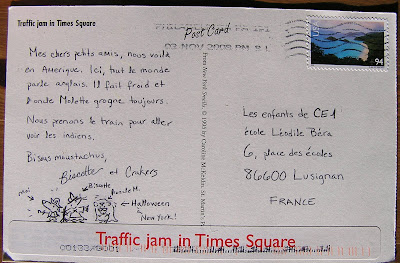 Traffic jam in Times Square
Post Card
03 NOV 2008 PM 8 L
USA
94
Mes chers petits amis, nous voilà
en Amérique. Ici, tout le monde
parle anglais. Il fait froid et
Molette grogne toujours.
Nous prenons le train pour aller
voir les indiens.
Bisous moustachus,
Biscotte et Crakers
moi
Biscotte
Molette
Halloween
New York!
Les enfants de CE1
école Léodile Béra
6, place des écoles
86600 Lusignan
FRANCE
From New York Smells © 1998 by Caroline M.
St. Martin's
Traffic jam in Times Square